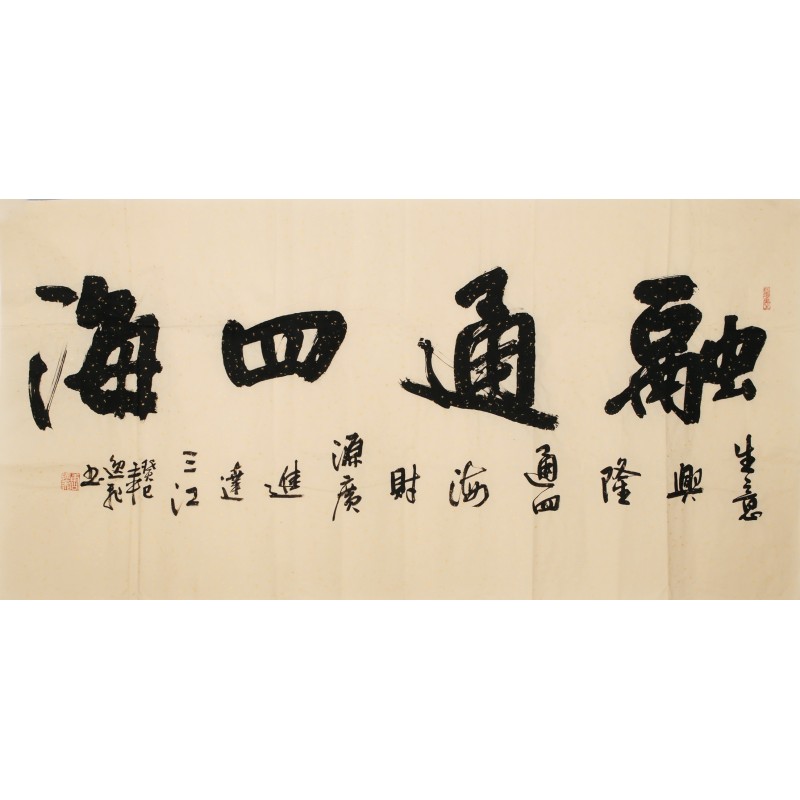 融通四海
生意興隆通四海財源廣進達三江
癸巳年
逸飛書